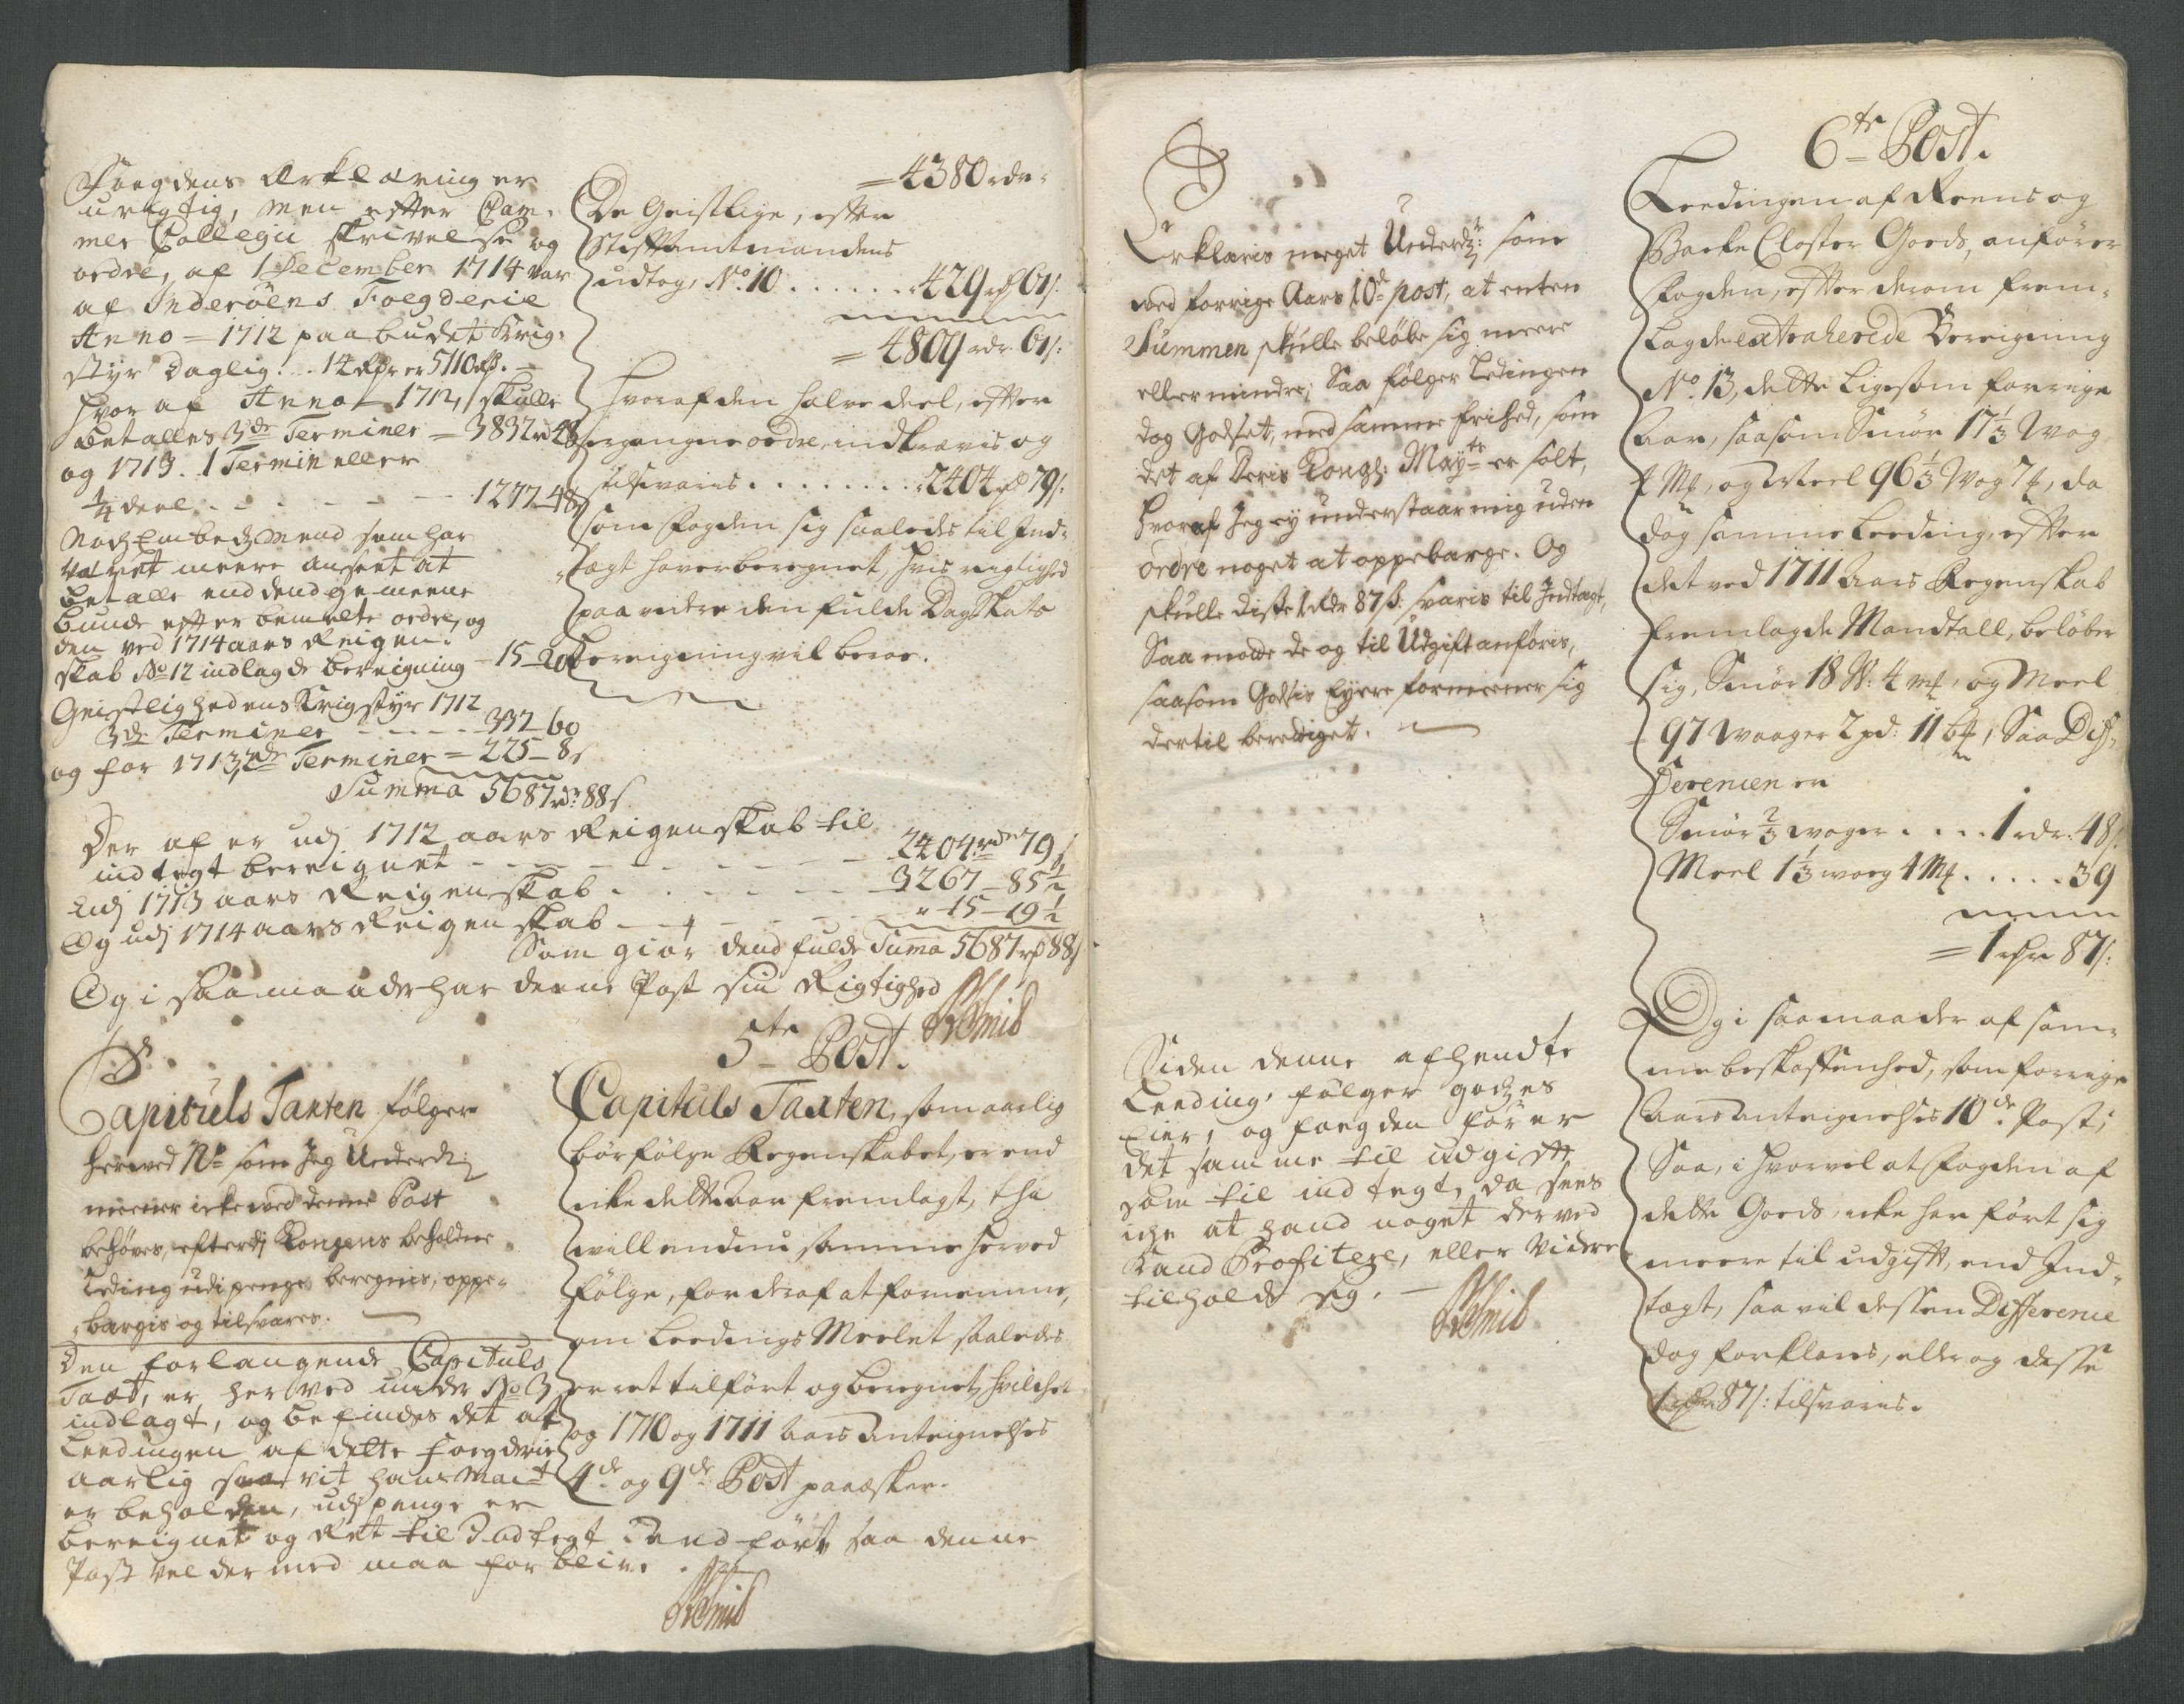 Foegdens Erklæring er
urigtig, men efter Cam-
mer Collegii skrivelse og
ordre, af 1 December 1714 var
af Inderöens Foegderie
Anno 1712 paabudet Krig-
styr Daglig 14 rdr er 5110 rd.
hvor af Anno 1712, skulle
betalles 3de Terminer = 3832 rd 48
og 1713. 1 Termin eller
1/4 deel - - - - 1277 - 48
Noch Embedz Mend som har
været meere ansæt at
betalle end dend gemeene
bunde efter bemelte ordre, og
den ved 1714 aars Reigen-
skab No 12 indlagde bereigning - 15 - 20
Geistlighedens Krigstyr 1712
3de Terminer - - - - 332 60
og for 1713, 2de Terminer = 225 - 8 s
Summa 5687 rd: 88 s
Der af er udj 1712 aars Reigenskab til
indtegt bereignet - - - - - 2404 rdr 79 s
Udj 1713 aars Reigenskab - - - - 3267 - 85 1/2
Og udj 1714 aars Reigenskab - - - - 15 - 19 1/2
Som giör dend fulde Suma 5687 rd 88 s
Og i saamaader har denne Post sin Rigtighed
= 4380 rdr.
De Geistlige, efter
Stiftamtmandens
udtog, No. 10 . . . . . . . 429 rd 61 s:
= 4809 rdr. 61 s:
Hvoraf den halve deel, efter
ergangne ordre, indkrævis og
tilsvaris . . . . . . . . 2404 rd 79 s:
som Fogden sig saaledes til Ind-
tægt haver beregnet, hvis rigtighed
paa videre den fulde DagSkats
bereigning vil beroe.
5te Post.
Capituls Taxten følger
herved No som Jeg Underd:
meener icke ved denne Post
behöves, efterdj Kongens beholdne
Leding udi penge beregnis, oppe-
bærgis og tilsvares.
Den forlangende Capituls
Taxt, er her ved under No 3
indlagt, og befindes det at
Leedingen af dette Foegderie
aarlig saa vit hans Mait
er beholden, udj penge er
bereignet og Ret til Indtegt
förtt saa denne
Post vel dermed maa forblive.
Capituls Taxten, som aarlig
bör fölge Regenskabet, er end
icke dette Aar fremlagt, thi
vill endnu samme herved
fölge, for deraf at fornemme,
om Leedings Meelet saaledes
er ret tilfört og beregnet, hvilchet
og 1710 og 1711 Aars Anteignelses
4de og 9de Post paaæsker.
Erklæris noget Underd: som
ved forrige Aars 10de post, at enten
Summen skulle belöbe sig meere
eller mindre; Saa fölger Ledingen
dog Godset, med samme frihed, som
det af Deris Kongl: Mayts er solt,
Hvoraf Jeg ey understaar mig uden
ordre noget at oppebærge. Og
skulle disse 1 Rdr 87 s: svaris til Indtægt,
Saa motte de og til Udgift anföris,
saasom Godsis Eyere formeener sig
dertil berettiget.
Siden denne afhendte
Leeding, fölger godzes
Eier, og foegden förer
det samme til udgift
som til indtegt, da sees
iche at hand noget derved
kand Profitere, eller videre
tilholde sig.
6te Post.
Leedingen af Reens og
Backe Closter Goeds, anförer
Fogden, efter derom frem-
lagde extraherede Bereigning
No. 13, dette Ligesom forrige
Aar, saasom Smör 17 1/3 Wog
og Meel 96 1/3 Wog, da
dog samme Leeding, efter
det ved 1711 Aars Regenskab
fremlagde Mandtall, belöber
sig, Smör 18 W: 4 mk, og Meel
97 Waager 2 pd: 11 , Saa Dif-
ferencen er
Smör 2/3 woger . . . . 1 rdr. 48 s:
Meel 1 1/3 woeg 4 Mk . . . . . 39
= 1 rdr 87 s:
Og i saamaader af sam-
me beskaffenhed, som forrige
Aars anteignelses 10de Post;
Saa, i hvorvel at Fogden af
dette Goeds, icke har fört sig
meere til udgift, end Ind-
tægt, saa vil dessen Difference
dog forklares, eller og disse
1 rdr 87 s: tilsvares.